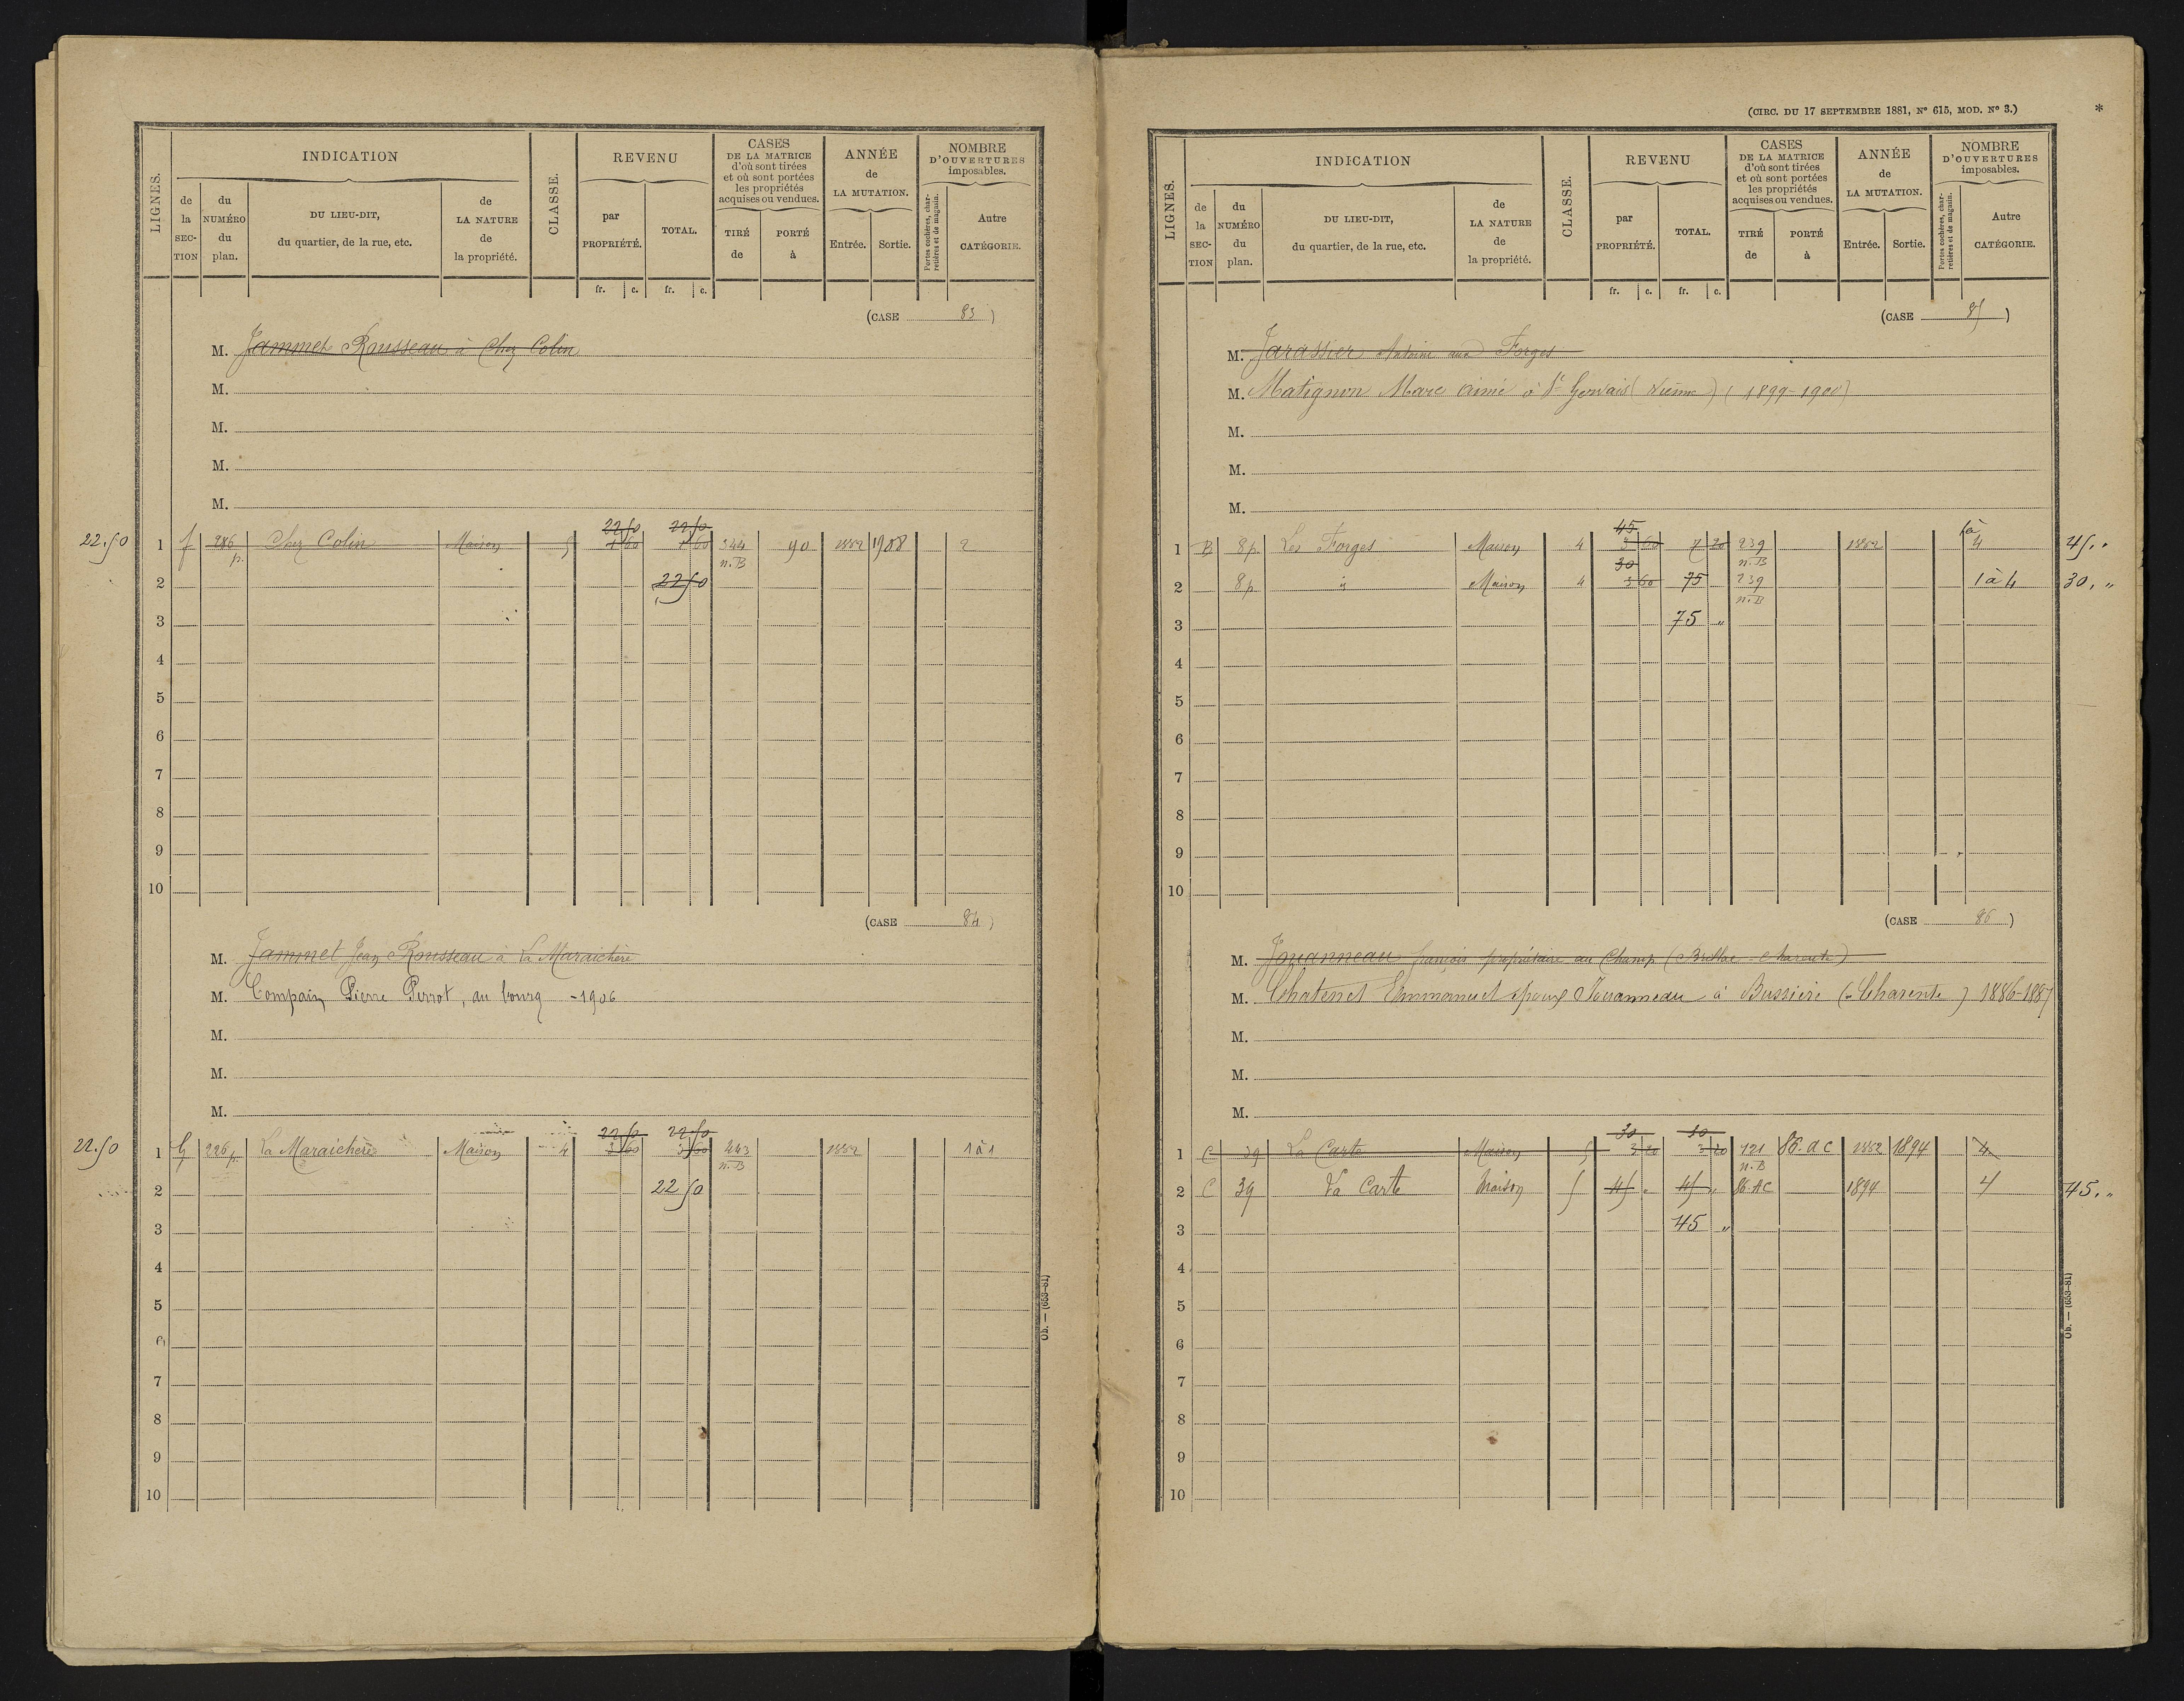 LIGNES.
INDICATION
CLASSE.
REVENU
CASES
DE LA MATRICE
d'où sont tirées
et où sont portées
les propriétés
acquises ou vendues.
ANNÉE
de
LA MUTATION.
NOMBRE
D'OUVERTURES
imposables.
de la SECTION
du NUMÉRO du plan.
DU LIEU-DIT,
du quartier, de la rue, etc.
de LA NATURE de la propriété.
par PROPRIÉTÉ.
TOTAL.
TIRÉ de
PORTÉ à
Entrée.
Sortie.
Portes cochères, charretières et de magasin.
Autre CATÉGORIE.
fr. c. fr. c.
(CASE 83)
M. Jammet Rousseau à Chez Colin
M.
M.
M.
M.
22 50 22 50
22.50 1 f 286 p. Chez Colin Maison 5 1 60 1 60 344 n.B 90 1882 1908 2
2 22 50
3
4
5
6
7
8
9
10
(CASE 84)
M. Jammet Jean Rousseau à La Maraichère
M. Compain Pierre Perrot, au bourg - 1906
M.
M.
M.
22 50 22 50
22.50 1 G 226 p. La Maraichère Maison 4 3 60 3 60 443 n.B 1882 1 à 1
2 22 50
3
4
5
6
7
8
9
10
Ob. — (653-81)
(CIRC. DU 17 SEPTEMBRE 1881, N° 615, MOD. N° 3.) *
LIGNES.
INDICATION
CLASSE.
REVENU
CASES
DE LA MATRICE
d'où sont tirées
et où sont portées
les propriétés
acquises ou vendues.
ANNÉE
de
LA MUTATION.
NOMBRE
D'OUVERTURES
imposables.
de la SECTION
du NUMÉRO du plan.
DU LIEU-DIT,
du quartier, de la rue, etc.
de LA NATURE de la propriété.
par PROPRIÉTÉ.
TOTAL.
TIRÉ de
PORTÉ à
Entrée.
Sortie.
Portes cochères, charretières et de magasin.
Autre CATÉGORIE.
fr. c. fr. c.
(CASE 85)
M. Jarassier Antoine aux Forges
M. Matignon Marc Aimé à St Gervais (Vienne) (1899-1900)
M.
M.
M.
45
1 B 8 p. Les Forges Maison 4 3 60 7 20 239 n.B 1882 1 à 4 45.„
30
2 8 p. à Maison 4 3 60 75 239 n.B 1 à 4 30.„
3 75 „
4
5
6
7
8
9
10
(CASE 86)
M. Jouanneau françois propriétaire au Champ (Brillac - Charente)
M. Chatenet Emmanuel époux Jouanneau à Bussière (Charente) 1886-1887
M.
M.
M.
30 30
1 C 39 La Carte Maison 5 3 20 3 20 121 n.B 86.AC 1882 1894 4
2 C 39 La Carte Maison 5 45 „ 45 „ 86.AC 1894 4 45.„
3 45 „
4
5
6
7
8
9
10
Ob. — (653-81)